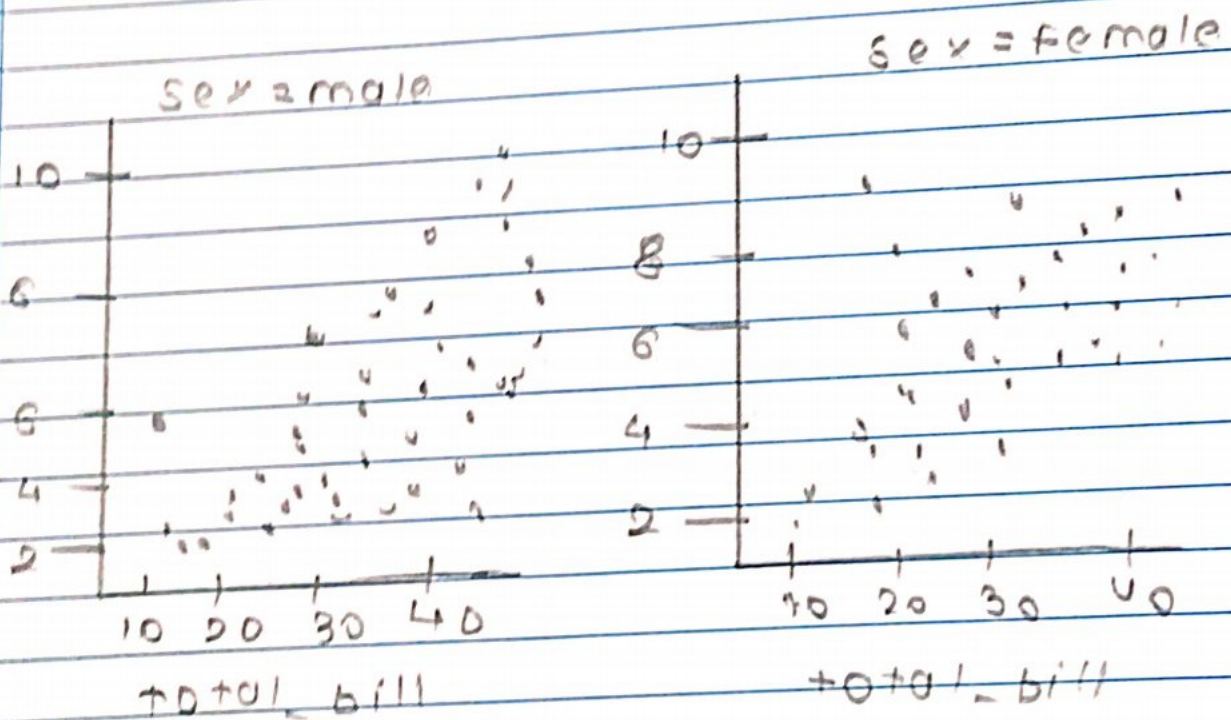 sex = male
10
6
6
4
2
10 20 30 40
total_bill
sex = female
10
8
6
4
2
10 20 30 40
total_bill